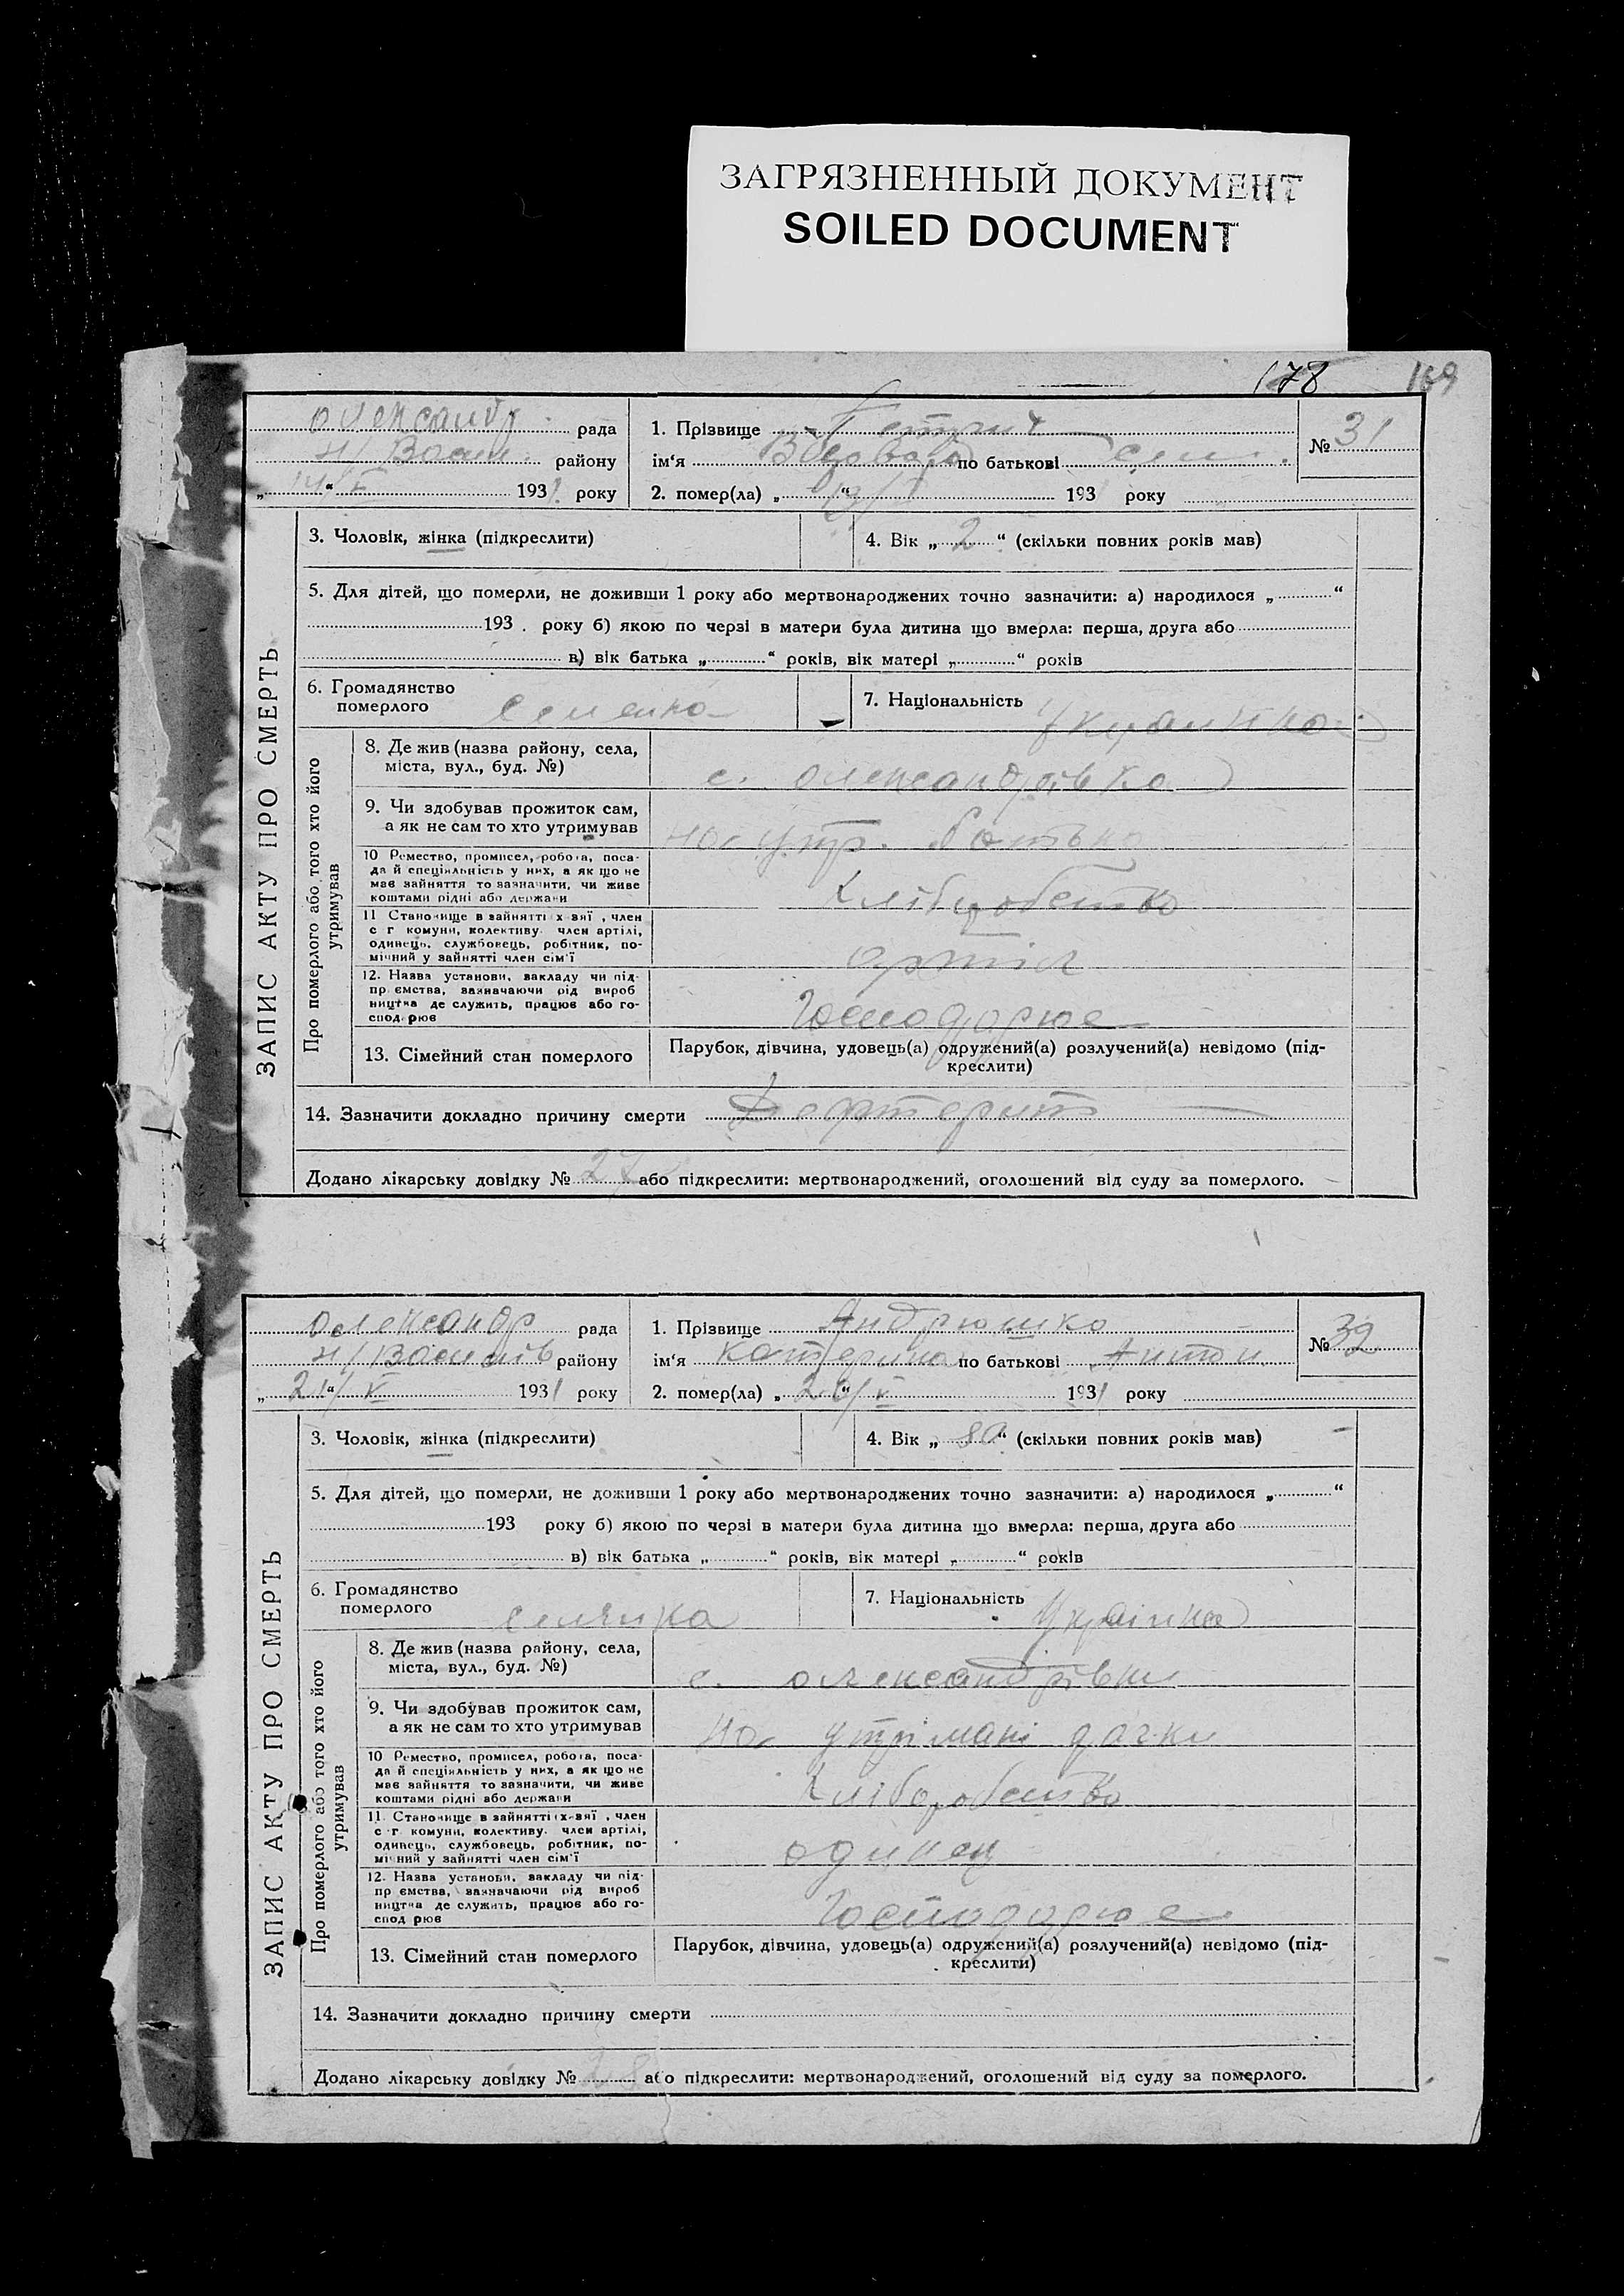 ЗАГРЯЗНЕННЫЙ ДОКУМЕНТ
SOILED DOCUMENT
178 169
ЗАПИС АКТУ ПРО СМЕРТЬ
олександр рада
н/Васил району
14/V 1931 року
1. Прізвище
ім‘я по батькові
2. помер(ла) „ “ 193 року
№ 31
3. Чоловік, жінка (підкреслити)
4. Вік „ 2 “ (скільки повних років мав)
5. Для дітей, що померли, не доживши 1 року або мертвонароджених точно зазначити: а) народилося „ “
193 . року б) якою по черзі в матери була дитина що вмерла: перша, друга або
в) вік батька „ “ років, вік матері „ “ років
6. Громадянство
померлого
7. Національність
Про померлого або того хто його
утримував
8. Де жив (назва району, села,
міста, вул., буд. №)
с. олександрівка
9. Чи здобував прожиток сам,
а як не сам то хто утримував
на утр. батька
10 Ремество, промисел, робота, поса-
да й спеціяльність у них, а як що не
має зайняття то зазначити, чи живе
коштами рідні або держави
хліборобство
11 Становище в зайнятті х зяї , член
с г комуни, колективу член артілі,
одинець, службовець, робітник, по-
мічний у зайнятті член сім‘ї
артіл
12. Назва установи, закладу чи під-
пр ємства, зазначаючи рід вироб
ництва де служить, працює або го-
сподорює
Господорює
13. Сімейний стан померлого
Парубок, дівчина, удовець(а) одружений(а) розлучений(а) невідомо (під-
креслити)
14. Зазначити докладно причину смерти
Додано лікарську довідку № 27 або підкреслити: мертвонароджений, оголошений від суду за померлого.
ЗАПИС АКТУ ПРО СМЕРТЬ
олександр рада
н/Василів району
„ 21 “/V 1931 року
1. Прізвище Андрюшко
ім‘я Катерина по батькові Антон.
2. помер(ла) „ 20 “/V 1931 року
№ 32
3. Чоловік, жінка (підкреслити)
4. Вік „ 80 “ (скільки повних років мав)
5. Для дітей, що померли, не доживши 1 року або мертвонароджених точно зазначити: а) народилося „ “
193 року б) якою по черзі в матери була дитина що вмерла: перша, друга або
в) вік батька „ “ років, вік матері „ “ років
6. Громадянство
померлого
селянка
7. Національність
Українка
Про померлого або того хто його
утримував
8. Де жив (назва району, села,
міста, вул., буд. №)
с. олександрівки
9. Чи здобував прожиток сам,
а як не сам то хто утримував
на утрімані дочки
10 Ремество, промисел, робота, поса-
да й спеціяльність у них, а як що не
має зайняття то зазначити, чи живе
коштами рідні або держави
хліборобство
11. Становище в зайнятті х зяї , член
с г комуни, колективу. член артілі,
одинець, службовець, робітник, по-
мічний у зайнятті член сім‘ї
одинец
12. Назва установи, закладу чи під-
пр ємства, зазначаючи рід вироб
ництва де служить, працює або го-
спод рює
Господорює
13. Сімейний стан померлого
Парубок, дівчина, удовець(а) одружений(а) розлучений(а) невідомо (під-
креслити)
14. Зазначити докладно причину смерти
Додано лікарську довідку № або підкреслити: мертвонароджений, оголошений від суду за померлого.